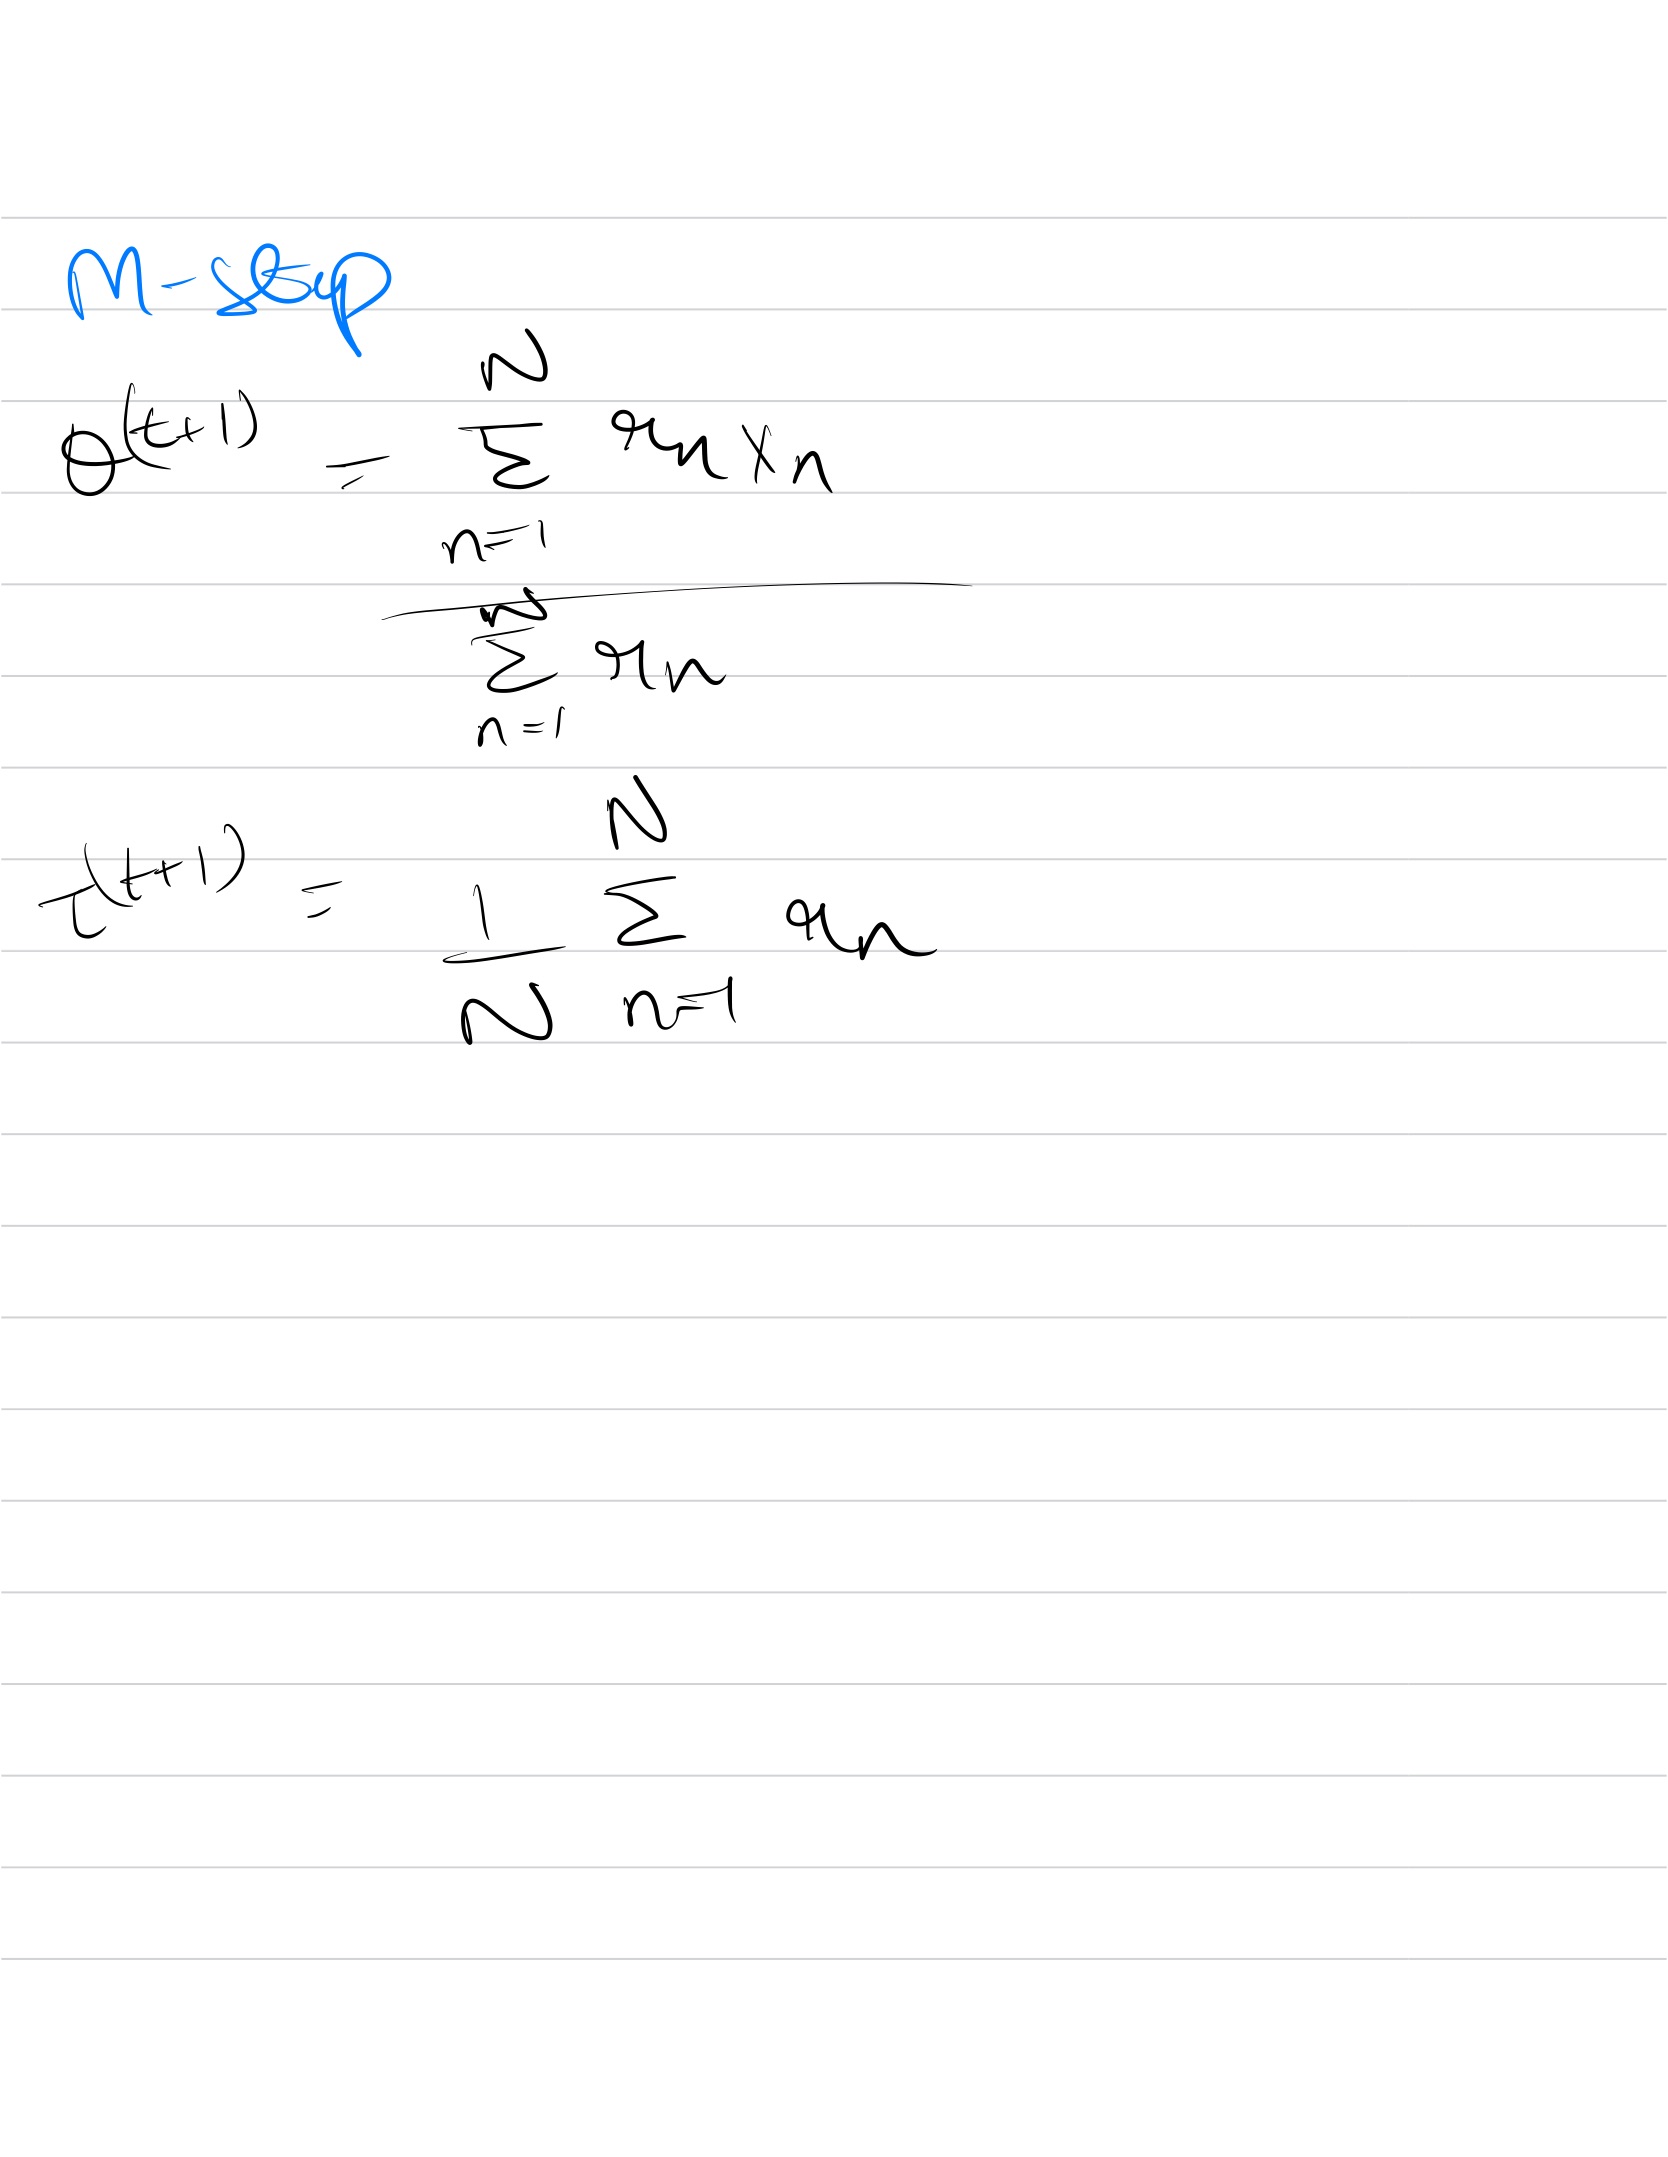 M-step
θ^(t+1) = \frac{\sum_{n=1}^{N} r_n x_n}{\sum_{n=1}^{N} r_n}
τ^(t+1) = \frac{1}{N} \sum_{n=1}^{N} r_n